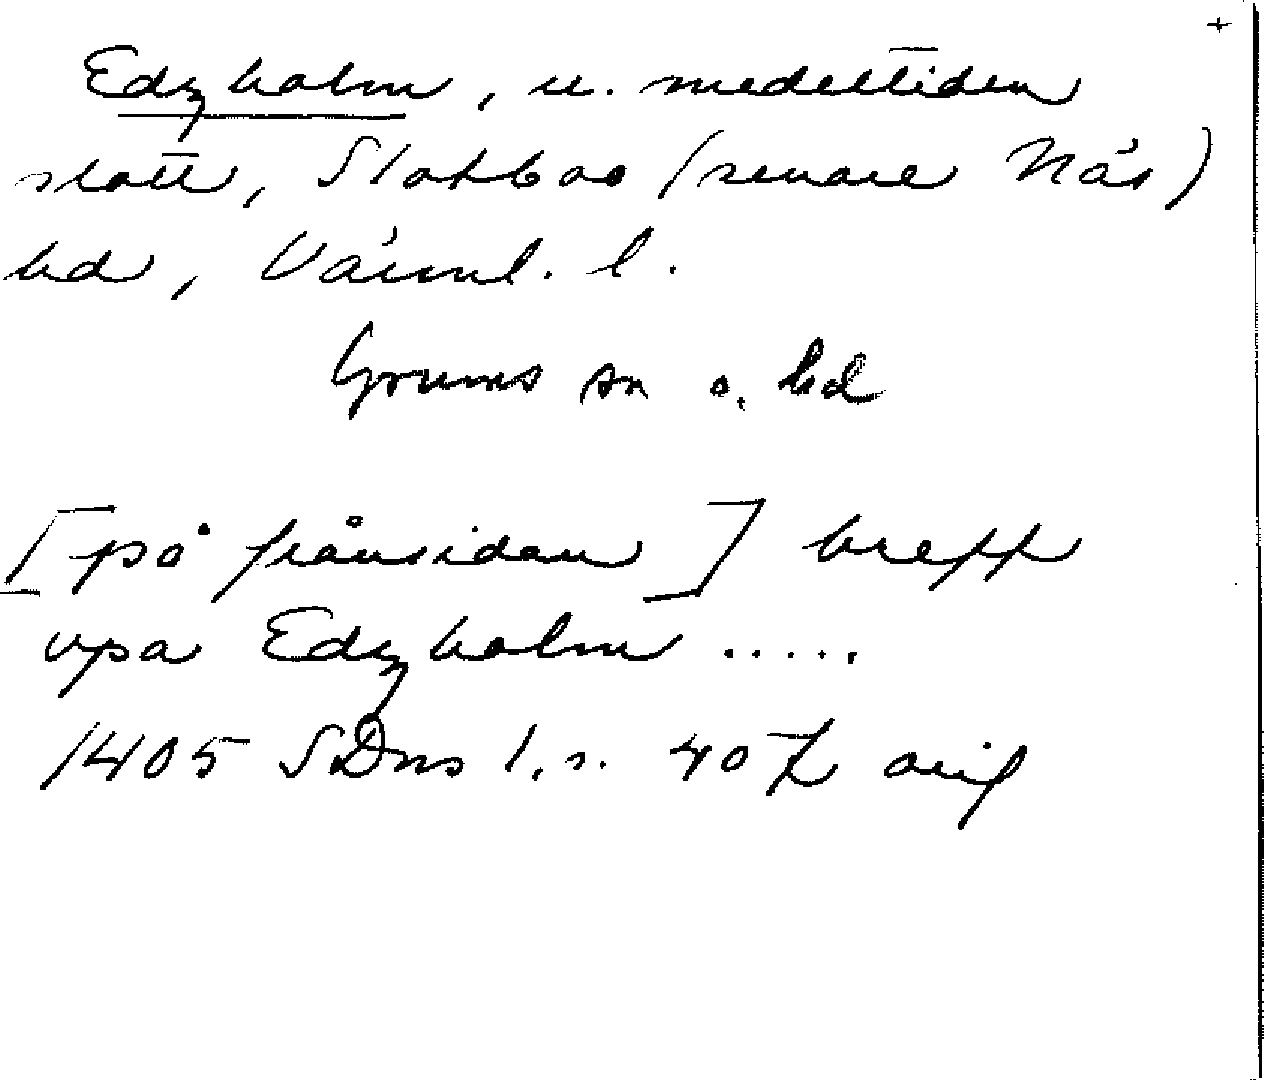 +
Edzholm, u. medeltiden
slott, Slotsbro (senare Näs)
hd, Värml. l.
Grums sn o. hd
[på frånsidan] breff
vpa Edzholm .....
1405 SDns 1. s. 407 orig